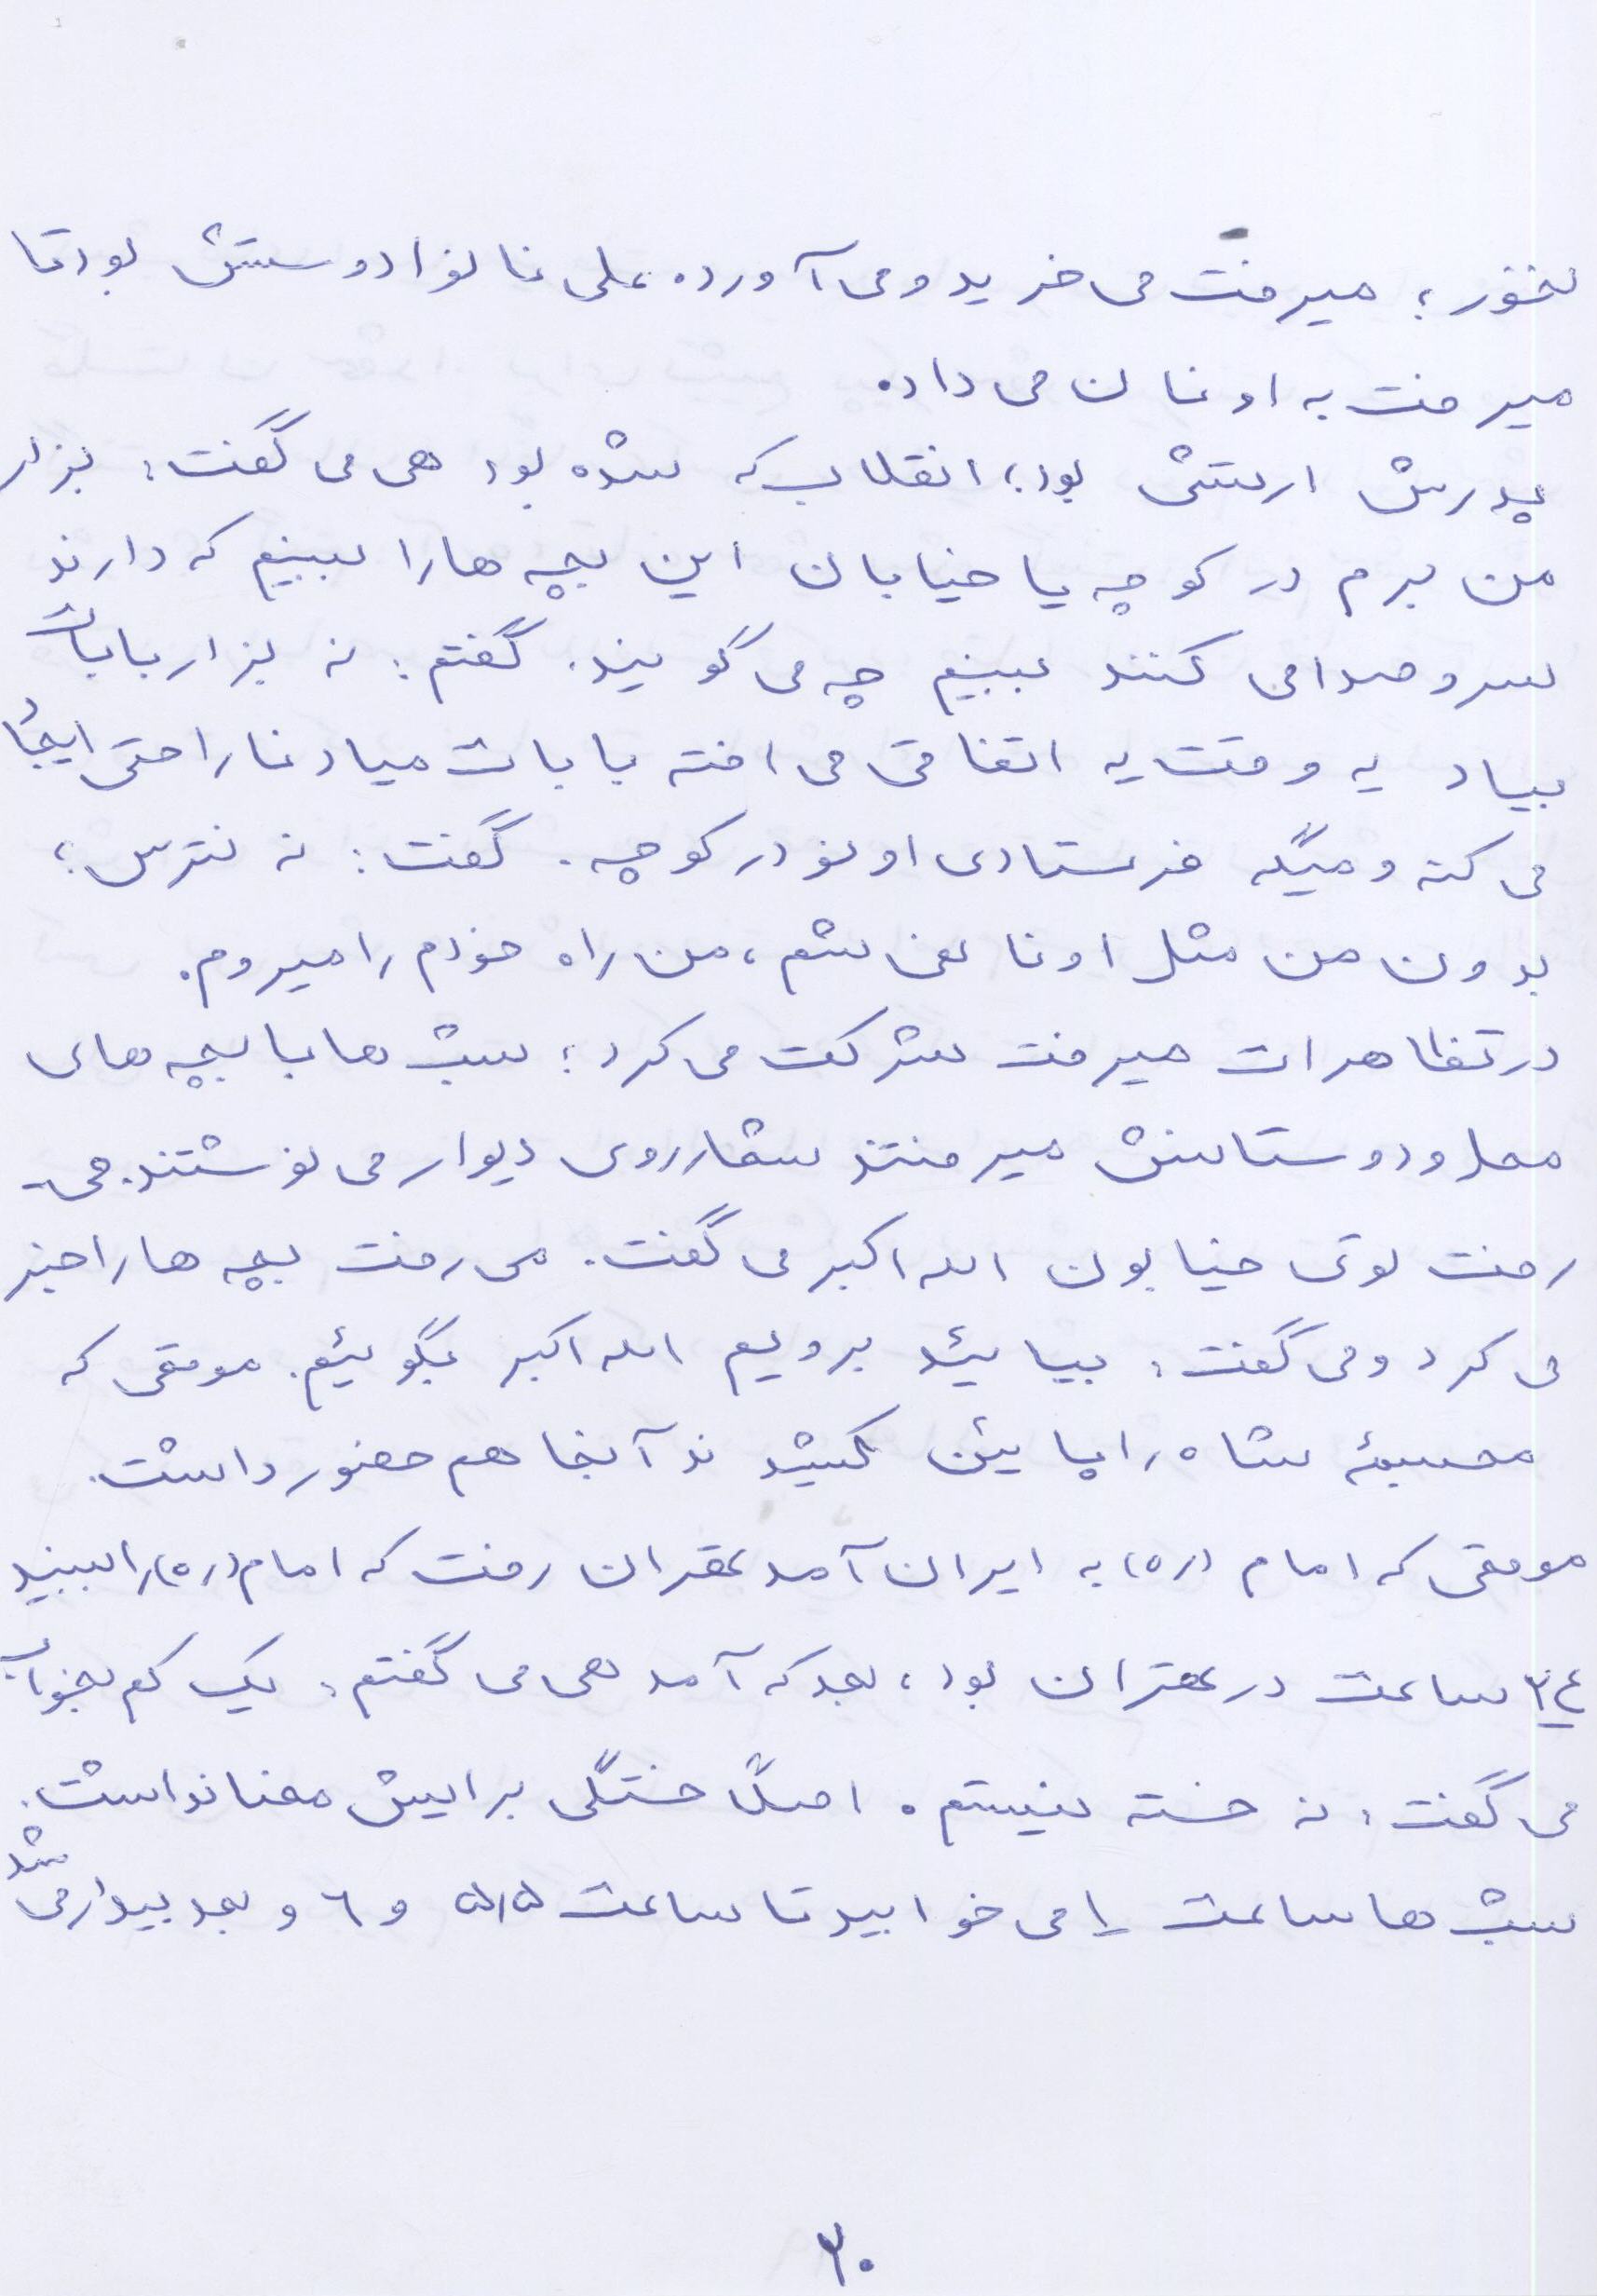 نخور؛ میرفت می خرید و می آورد. علی نانوا دوستش بود تا
میرفت به او نان می داد.
پدرش ارتشی بود؛ انقلاب که شده بود هی می گفت: بزار
من برم در کوچه یا خیابان این بچه ها را ببینم که دارند
سر و صدا می کنند ببینم چه می گویند. گفتم: نه بزار بابات
بیاد یه وقت یه اتفاقی می افته بابات میاد ناراحتی ایجاد
می کنه و میگه فرستادی اونو در کوچه. گفت: نه نترس؛
بدون من مثل اونا نمی شم، من راه خودم را میروم.
در تظاهرات میرفت شرکت می کرد؛ شب ها با بچه های
محل و دوستانش میرفتند شعار روی دیوار می نوشتند. می-
رفت توی خیابون الله اکبر می گفت. می رفت بچه ها را خبر
می کرد و می گفت: بیائید برویم الله اکبر بگوئیم. موقعی که
مجسمۀ شاه را پایین کشیدند آنجا هم حضور داشت.
موقعی که امام (ره) به ایران آمد تهران رفت که امام (ره) را ببیند
۲۴ ساعت در تهران بود، بعد که آمد هی می گفتم: یک کم بخواب.
می گفت: نه خسته نیستم. اصلاً خستگی برایش معنا نداشت.
شب ها ساعت ۱ می خوابید تا ساعت ۵/۵ و ۶ و بعد بیدار می شد
۲۰